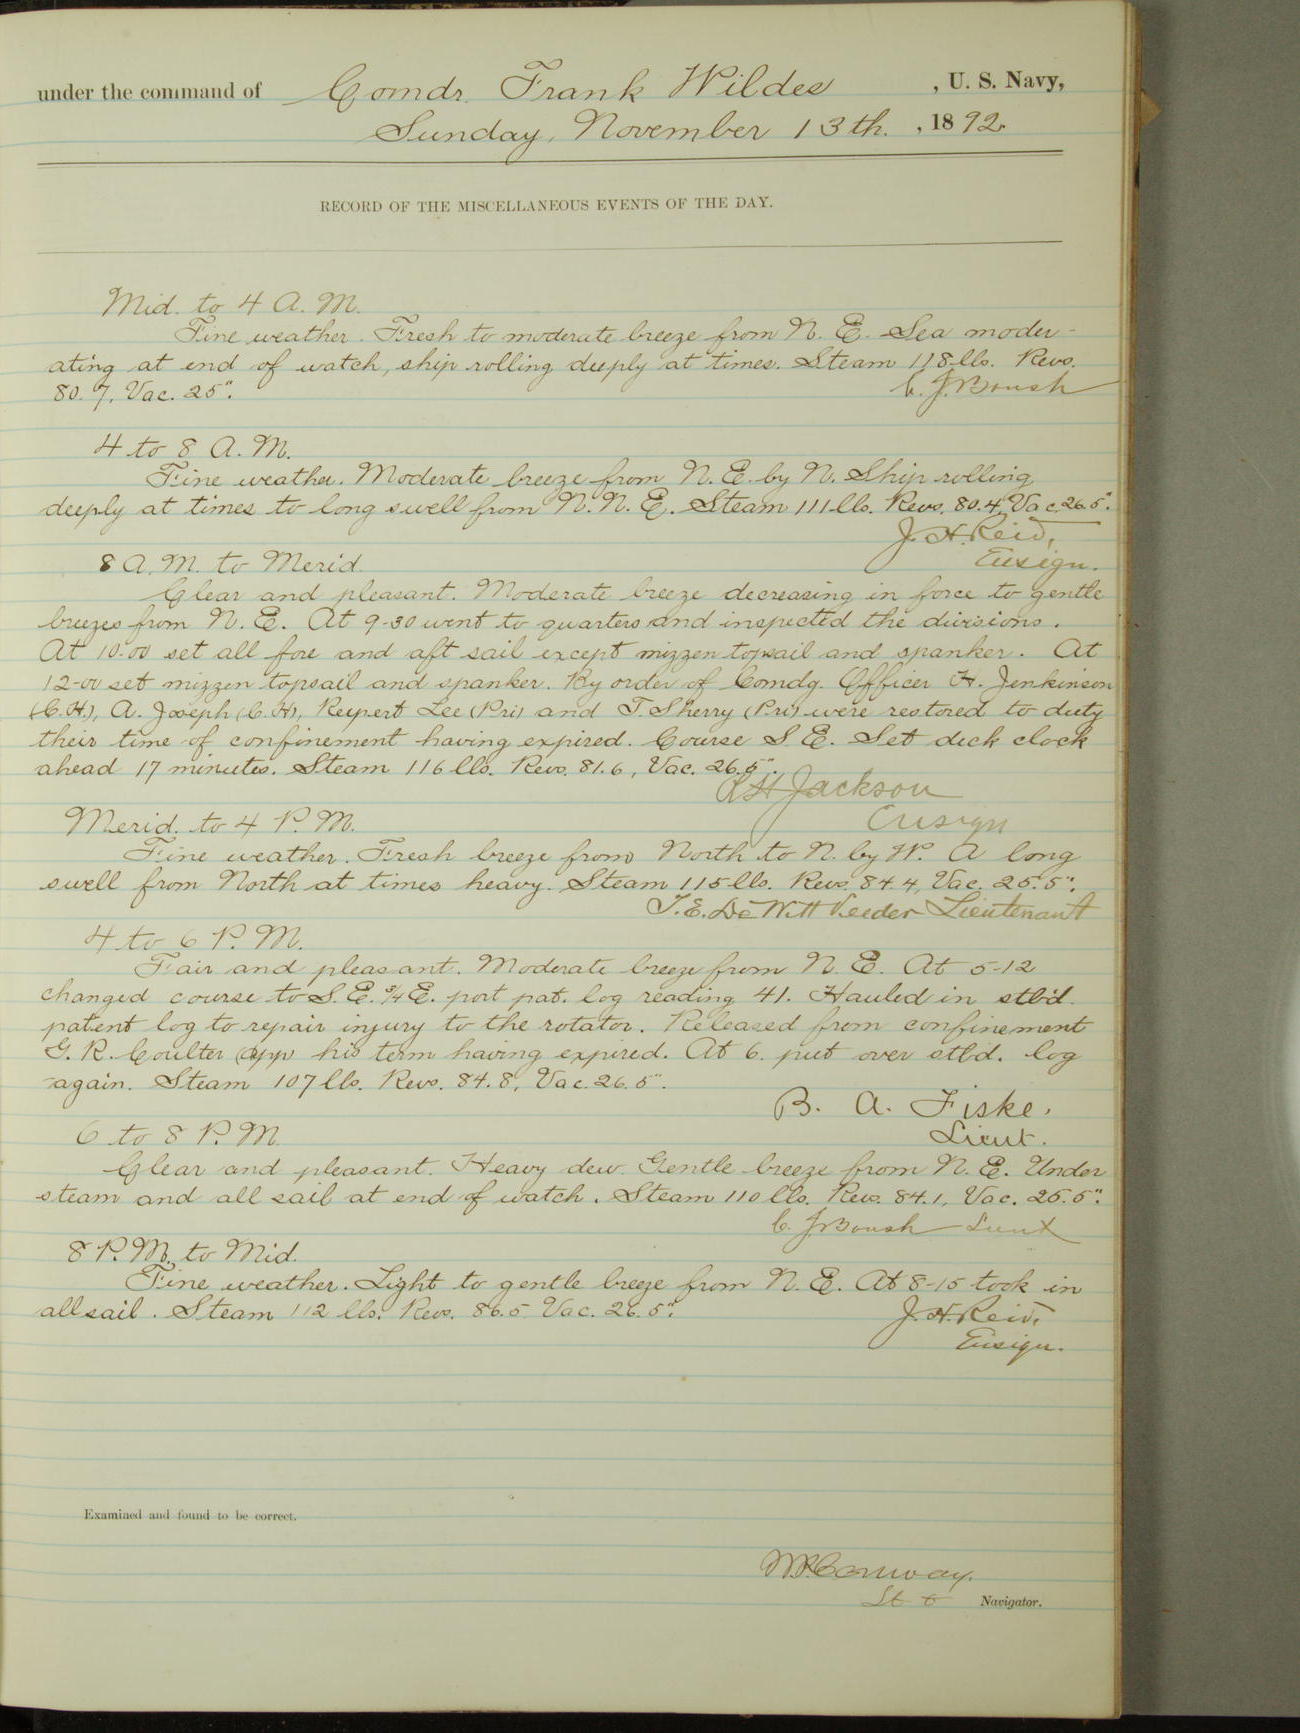 under the command of Comdr. Frank Wildes, U. S. Navy,
Sunday, November 13th., 1892.
RECORD OF THE MISCELLANEOUS EVENTS OF THE DAY.
Mid. to 4 A. M.
Fine weather. Fresh to moderate breeze from N. E. Sea moder-
ating at end of watch, ship rolling deeply at times. Steam 118 lbs. Revs.
80.7, Vac. 25".
C. J. Boush
4 to 8 A. M.
Fine weather. Moderate breeze from N. E. by N. Ship rolling
deeply at times to long swell from N. N. E. Steam 111 lbs. Revs. 80.4, Vac. 26.5".
J. H. Reid,
Ensign.
8 A. M. to Merid.
Clear and pleasant. Moderate breeze decreasing in force to gentle
breezes from N. E. At 9-30 went to quarters and inspected the divisions.
At 10-00 set all fore and aft sail except mizzen topsail and spanker. At
12-00 set mizzen topsail and spanker. By order of Comdg. Officer H. Jenkinson
(C.H.), A. Joseph (C.H), Reupert Lee (Pri) and T. Sherry (Pri) were restored to duty
their time of confinement having expired. Course S. E. Set deck clock
ahead 17 minutes. Steam 116 lbs. Revs. 81.6, Vac. 26.5".
R H Jackson
Ensign
Merid. to 4 P. M.
Fine weather. Fresh breeze from North to N. by W. A long
swell from North at times heavy. Steam 115 lbs. Revs. 84.4, Vac. 25.5".
T. E. DeWitt Veeder Lieutenant
4 to 6 P. M.
Fair and pleasant. Moderate breeze from N. E. At 5-12
changed course to S. E. ¾ E. port pat. log reading 41. Hauled in stb'd.
patent log to repair injury to the rotator. Released from confinement
G. R. Coulter (App) his term having expired. At 6. put over stbd. log
again. Steam 107 lbs. Revs. 84.8, Vac. 26.5".
B. A. Fiske.
Lieut.
6 to 8 P. M.
Clear and pleasant. Heavy dew. Gentle breeze from N. E. Under
steam and all sail at end of watch. Steam 110 lbs. Revs. 84.1, Vac. 25.5".
C. J. Boush Lieut
8 P. M. to Mid.
Fine weather. Light to gentle breeze from N. E. At 8-15 took in
all sail. Steam 112 lbs. Revs. 86.5 Vac. 26.5".
J. H. Reid,
Ensign.
Examined and found to be correct.
Conway.
Lt & Navigator.